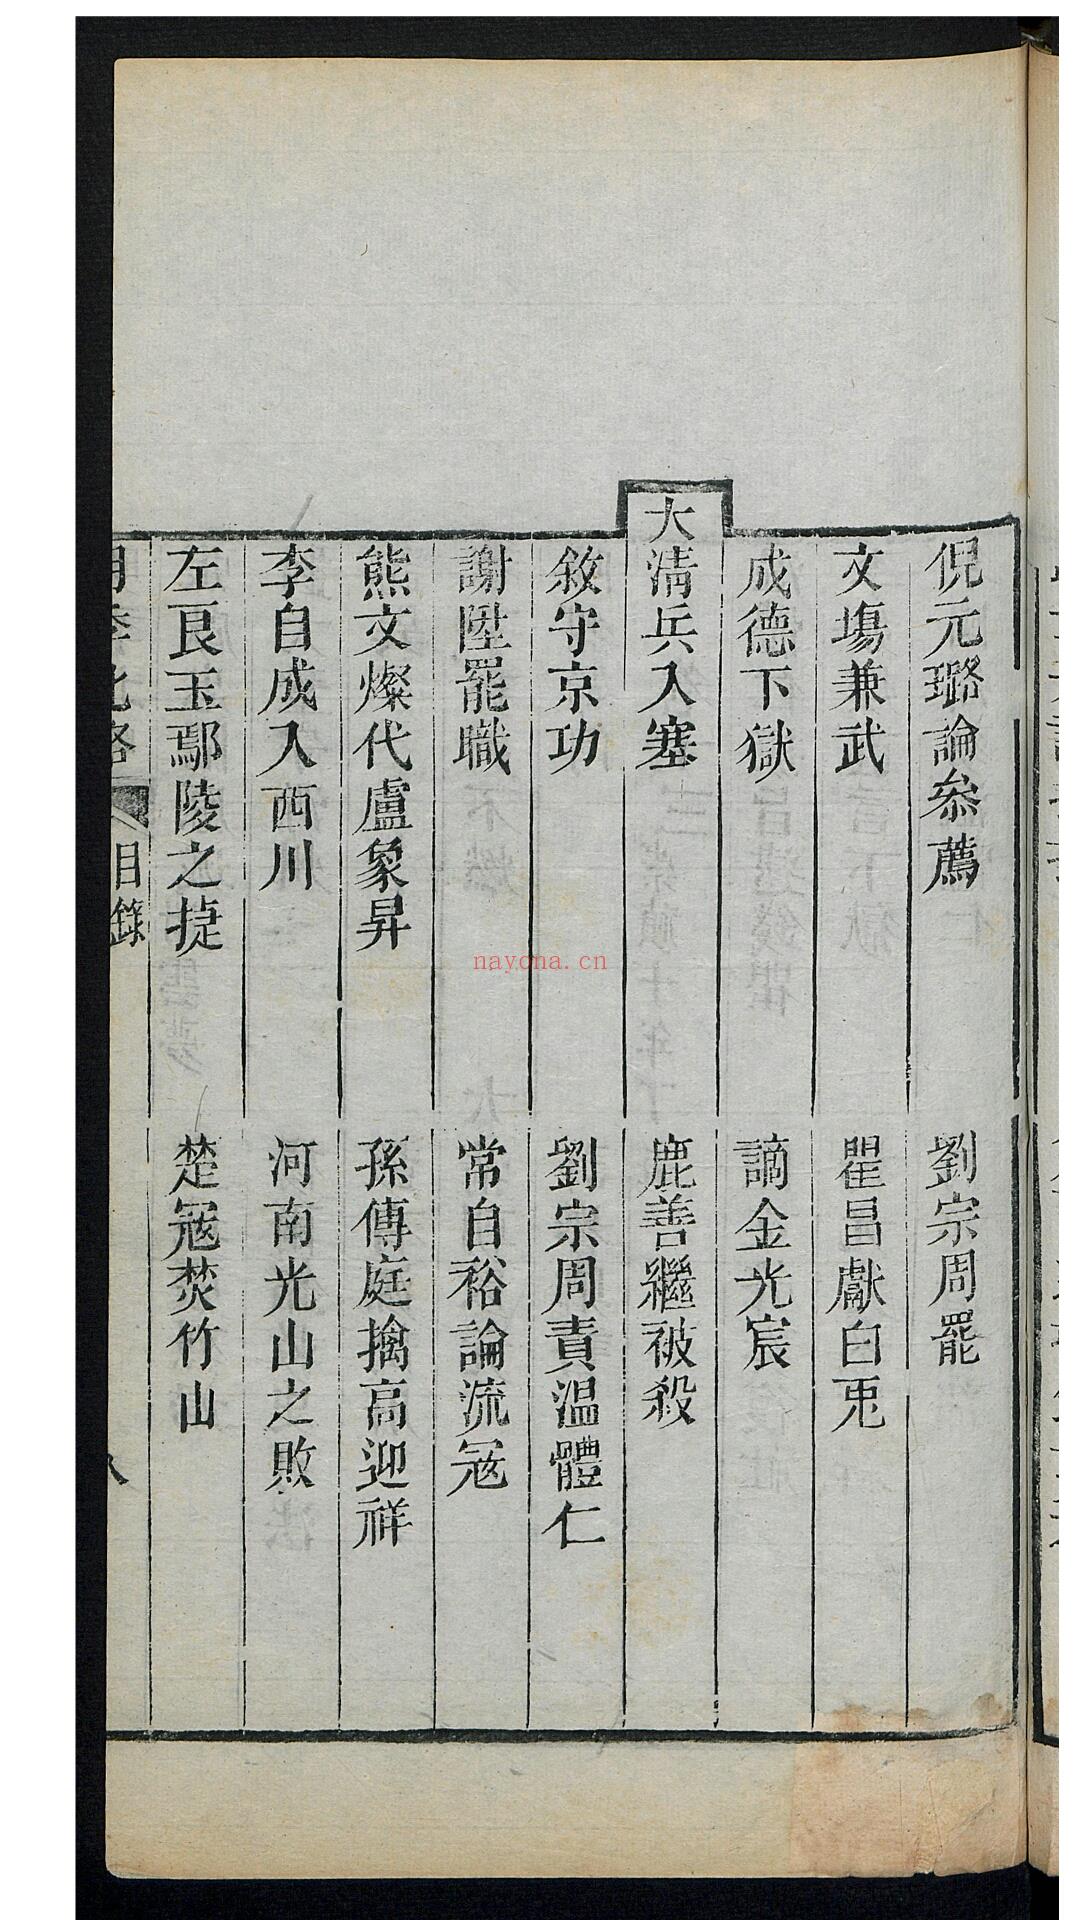 倪元璐論叅薦　劉宗周罷
文塲兼武　瞿昌獻白兎
成德下獄　謫金光宸
大清兵入塞　鹿善繼被殺
敘守京功　劉宗周責温體仁
謝陞罷職　常自裕論流寇
熊文燦代盧象昇　孫傳庭擒高迎祥
李自成入西川　河南光山之敗
左良玉鄢陵之捷　楚寇焚竹山
明季北略　目錄　八
nayona.cn